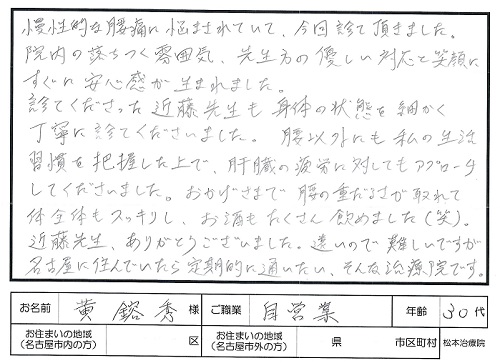 慢性的な腰痛に悩まされていて、今回診て頂きました。
院内の落ちつく雰囲気、先生方の優しい対応と笑顔に
すぐに安心感が生まれました。
診てくださった近藤先生も身体の状態を細かく
丁寧に診てくださいました。腰以外にも私の生活
習慣を把握した上で、肝臓の疲労に対してもアプローチ
してくださいました。おかげさまで腰の重だるさが取れて
体全体もスッキリし、お酒もたくさん飲めました(笑)。
近藤先生、ありがとうございました。遠いので難しいですが
名古屋に住んでいたら定期的に通いたい、そんな治療院です。
お名前 黄鎔秀 様 ご職業 自営業 年齢 30代
お住まいの地域 (名古屋市内の方) 区 お住まいの地域 (名古屋市外の方) 県 市区町村 松本治療院